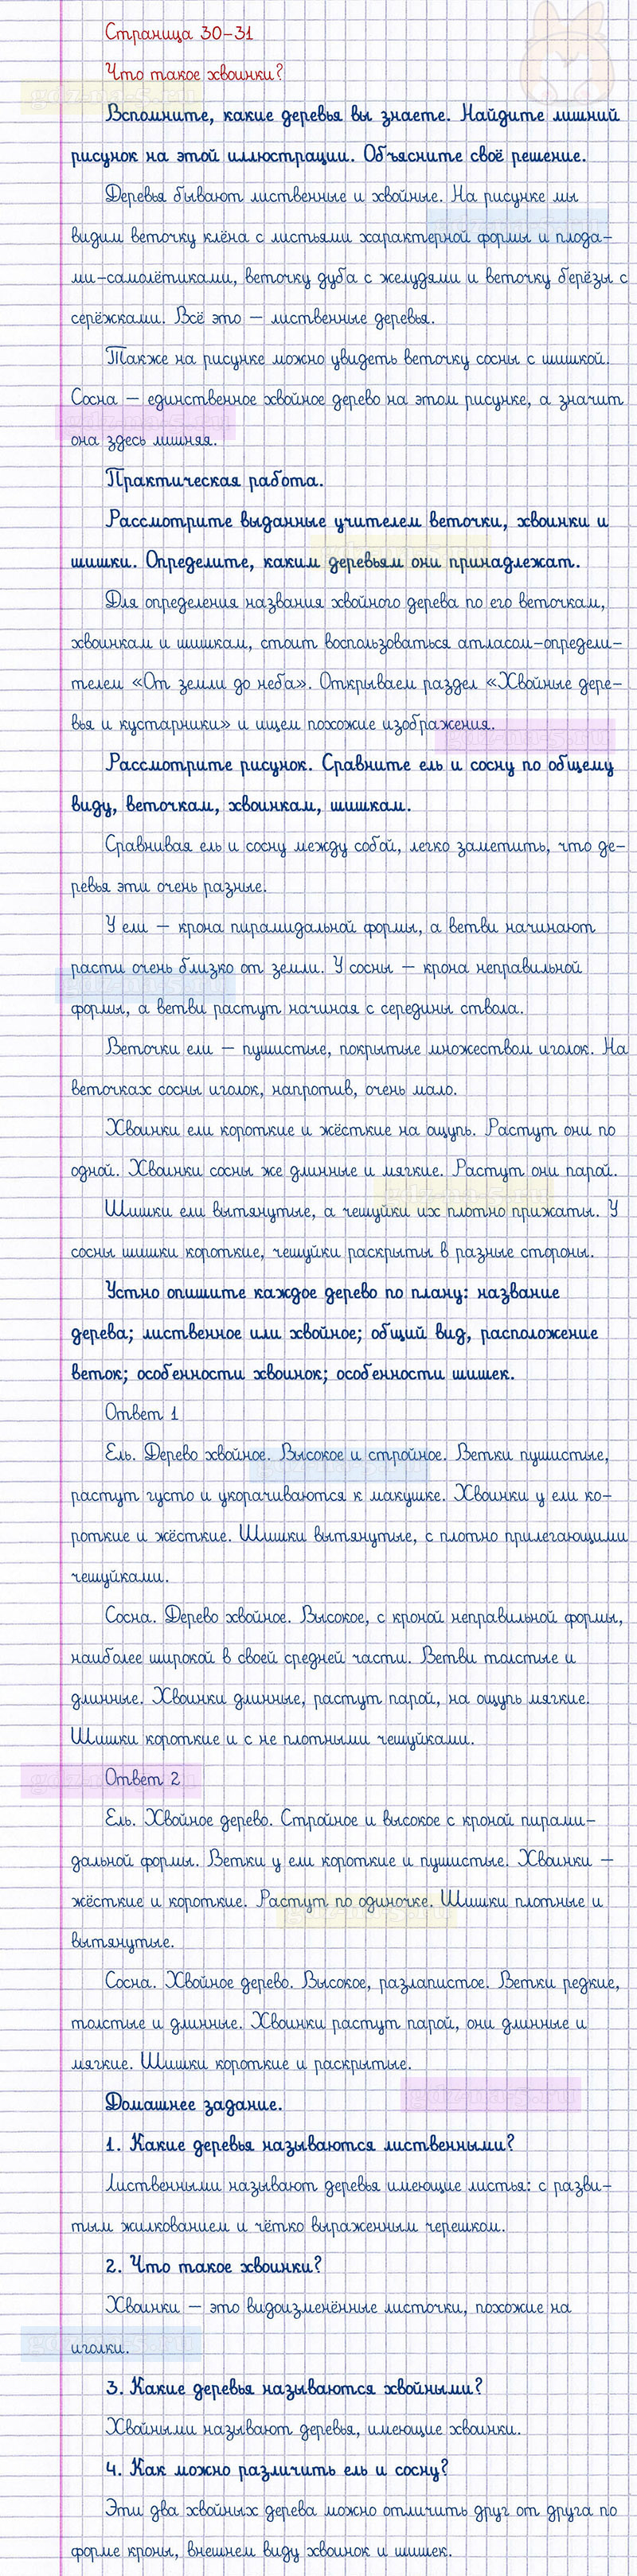 Страница 30-31
Что такое хвоинки?
Вспомните, какие деревья вы знаете. Найдите лишний
рисунок на этой иллюстрации. Объясните своё решение.
Деревья бывают лиственные и хвойные. На рисунке мы
видим веточку клёна с листьями характерной формы и плода-
ми-самолётиками, веточку дуба с желудями и веточку берёзы с
серёжками. Всё это — лиственные деревья.
Также на рисунке можно увидеть веточку сосны с шишкой.
Сосна — единственное хвойное дерево на этом рисунке, а значит
она здесь лишняя.
Практическая работа.
Рассмотрите выданные учителем веточки, хвоинки и
шишки. Определите, каким деревьям они принадлежат.
Для определения названия хвойного дерева по его веточкам,
хвоинкам и шишкам, стоит воспользоваться атласом-определи-
телем «От земли до неба». Открываем раздел «Хвойные дере-
вья и кустарники» и ищем похожие изображения.
Рассмотрите рисунок. Сравните ель и сосну по общему
виду, веточкам, хвоинкам, шишкам.
Сравнивая ель и сосну между собой, легко заметить, что де-
ревья эти очень разные.
У ели — крона пирамидальной формы, а ветви начинают
расти очень близко от земли. У сосны — крона неправильной
формы, а ветви растут начиная с середины ствола.
Веточки ели — пушистые, покрытые множеством иголок. На
веточках сосны иголок, напротив, очень мало.
Хвоинки ели короткие и жёсткие на ощупь. Растут они по
одной. Хвоинки сосны же длинные и мягкие. Растут они парой.
Шишки ели вытянутые, а чешуйки их плотно прижаты. У
сосны шишки короткие, чешуйки раскрыты в разные стороны.
Устно опишите каждое дерево по плану: название
дерева; лиственное или хвойное; общий вид, расположение
веток; особенности хвоинок; особенности шишек.
Ответ 1
Ель. Дерево хвойное. Высокое и стройное. Ветки пушистые,
растут густо и укорачиваются к макушке. Хвоинки у ели ко-
роткие и жёсткие. Шишки вытянутые, с плотно прилегающими
чешуйками.
Сосна. Дерево хвойное. Высокое, с кроной неправильной формы,
наиболее широкой в своей средней части. Ветви толстые и
длинные. Хвоинки длинные, растут парой, на ощупь мягкие.
Шишки короткие и с не плотными чешуйками.
Ответ 2
Ель. Хвойное дерево. Стройное и высокое с кроной пирами-
дальной формы. Ветки у ели короткие и пушистые. Хвоинки —
жёсткие и короткие. Растут по одиночке. Шишки плотные и
вытянутые.
Сосна. Хвойное дерево. Высокое, разлапистое. Ветки редкие,
толстые и длинные. Хвоинки растут парой, они длинные и
мягкие. Шишки короткие и раскрытые.
Домашнее задание.
1. Какие деревья называются лиственными?
Лиственными называют деревья имеющие листья: с разви-
тым жилкованием и чётко выраженным черешком.
2. Что такое хвоинки?
Хвоинки — это видоизменённые листочки, похожие на
иголки.
3. Какие деревья называются хвойными?
Хвойными называют деревья, имеющие хвоинки.
4. Как можно различить ель и сосну?
Эти два хвойных дерева можно отличить друг от друга по
форме кроны, внешнем виду хвоинок и шишек.